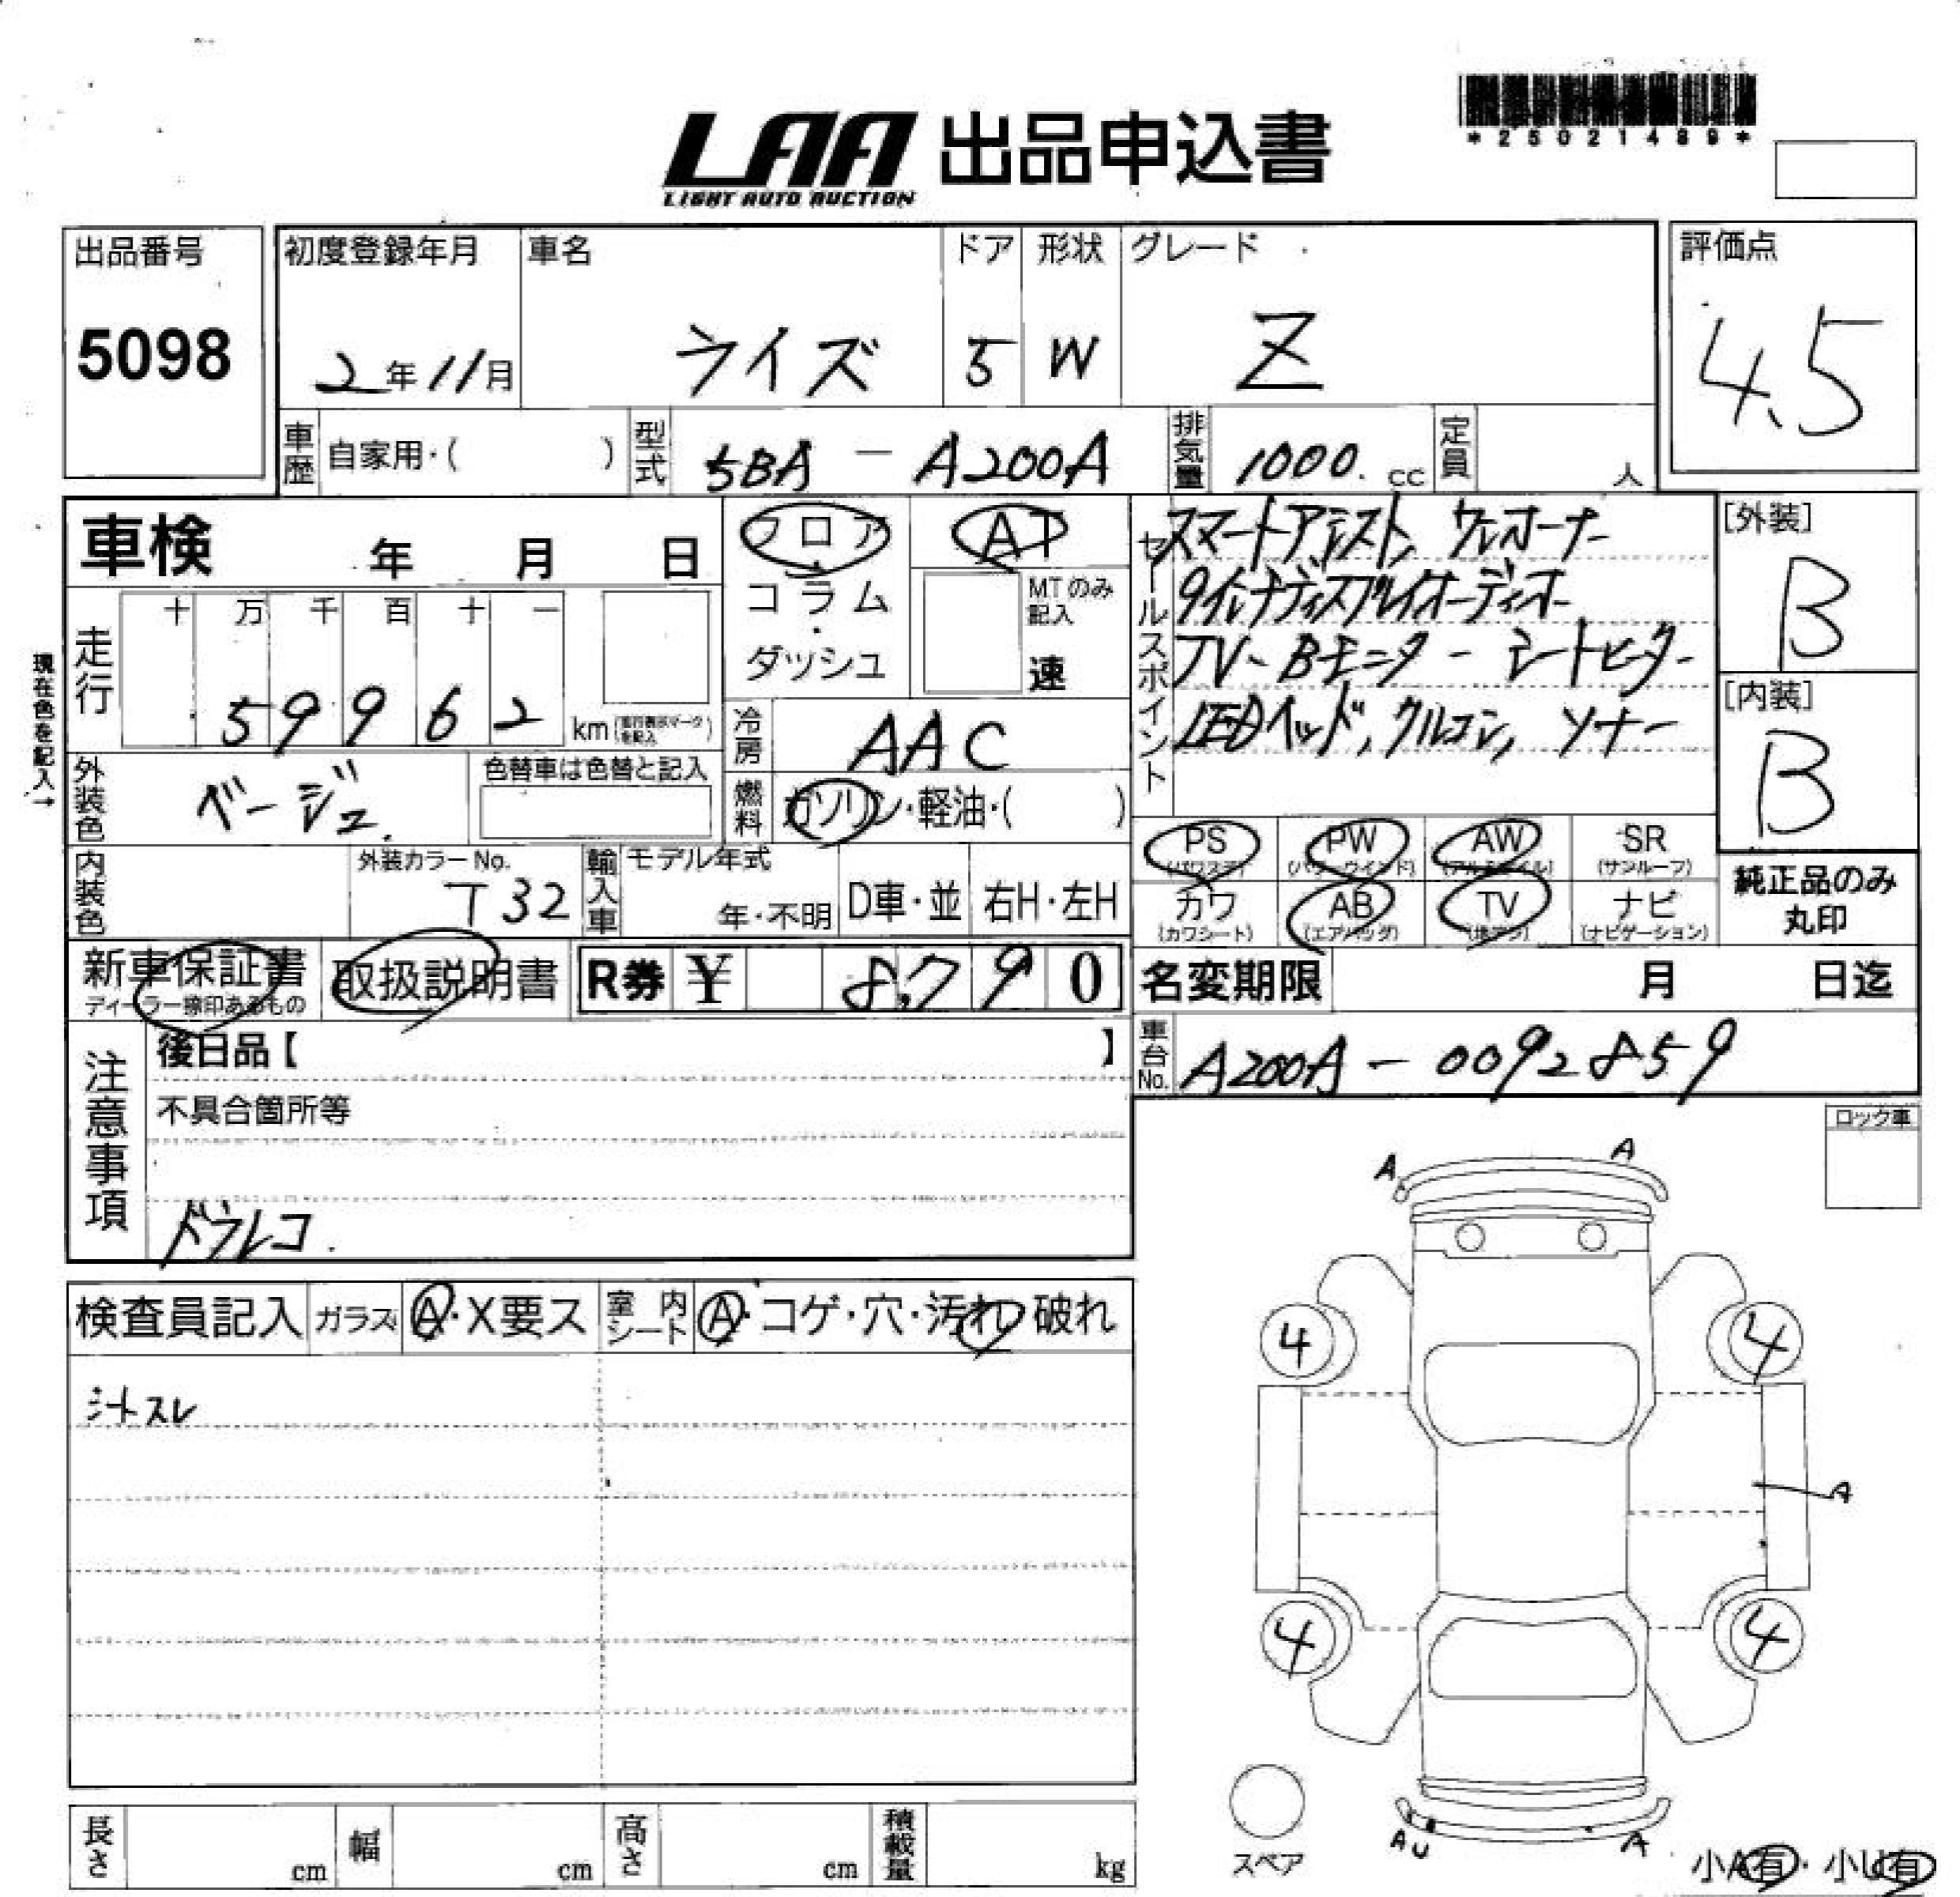 *25021489*
LAA 出品申込書
LIGHT AUTO AUCTION
出品番号
5098
初度登録年月
2年11月
車名
ライズ
ドア
5
形状
W
グレード
Z
評価点
4.5
車歴 自家用・( )
型式 5BA - A200A
排気量 1000. cc
定員 人
車検 年 月 日
フロア・コラム・ダッシュ
AT
MTのみ記入
速
セールスポイント
スマートアシスト, ワンオーナー
9インチディスプレイオーディオー
TV、Bモニター シートヒーター
LEDヘッド, クルコン, ソナー
[外装]
B
[内装]
B
現在色を記入→
走行
十 万 千 百 十 一
59962 km
冷房 AAC
外装色 ベージュ.
色替車は色替と記入
燃料 ガソリン・軽油・( )
内装色
外装カラーNo.
T32
輸入車
モデル年式
年・不明
D車・並
右H・左H
PS (パワステ)
PW (パワーウインド)
AW (アルミホイル)
SR (サンルーフ)
カワ (カワシート)
AB (エアバッグ)
TV (地デジ)
ナビ (ナビゲーション)
純正品のみ
丸印
新車保証書
ディーラー捺印あるもの
取扱説明書
R券 ¥ 8,790
名変期限 月 日迄
車台No. A200A - 0092859
注意事項
後日品【 】
不具合箇所等
ドラレコ.
ロック車
検査員記入
ガラス A・X要ス
室内シート A・コゲ・穴・汚れ・破れ
シートスレ
A A
4 4
A
4 4
スペア
AU A
小A有・小U有
長さ cm
幅 cm
高さ cm
積載量 kg